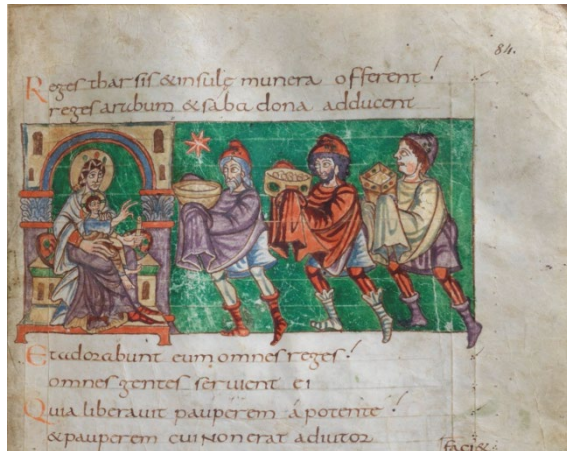 84.
Reges tharsis & insulę munera offerent!
reges arabum & saba dona adducent
Et adorabunt eum omnes reges!
omnes gentes seruient ei
Quia liberauit pauperem á potente!
& pauperem cui non erat adiutor
faci&